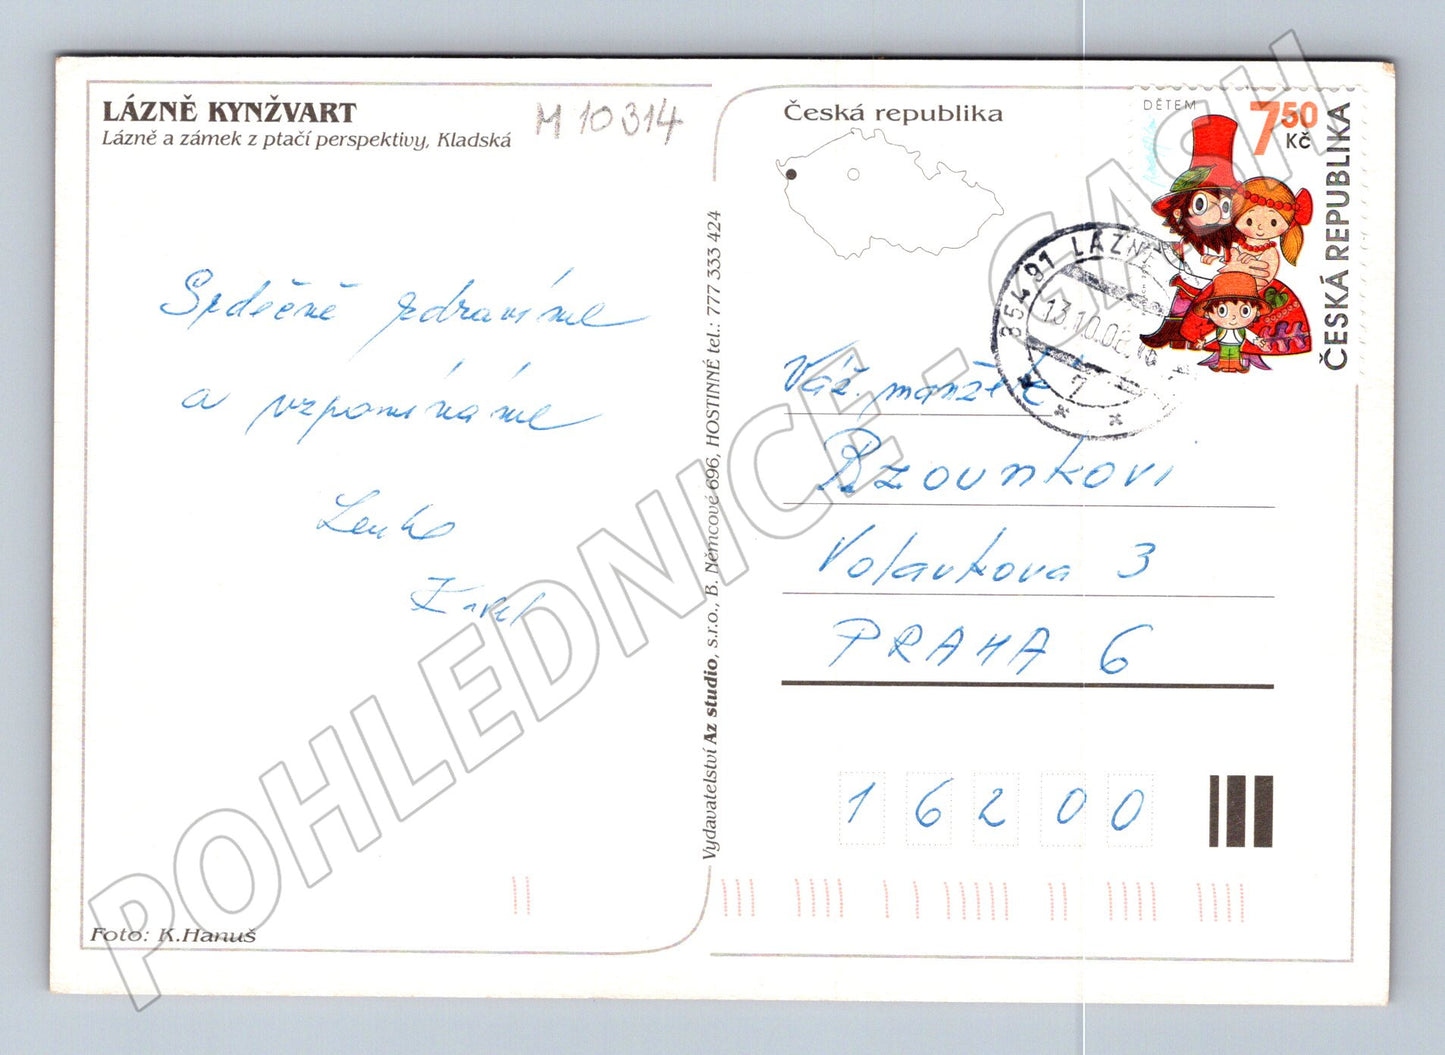 LÁZNĚ KYNŽVART
Lázně a zámek z ptačí perspektivy, Kladská
M 10314
Srdečně zdravíme
a vzpomínáme
Lenka
Karel
Foto: K.Hanuš
Vydavatelství Az studio, s.r.o., B. Němcové 696, HOSTINNÉ tel.: 777 333 424
Česká republika
DĚTEM
7,50
Kč
ČESKÁ REPUBLIKA
354 91 LÁZNĚ K
13.10.08
7
Váž. manželé
Bzounkovi
Volavkova 3
PRAHA 6
16200
POHLEDNICE - GASH